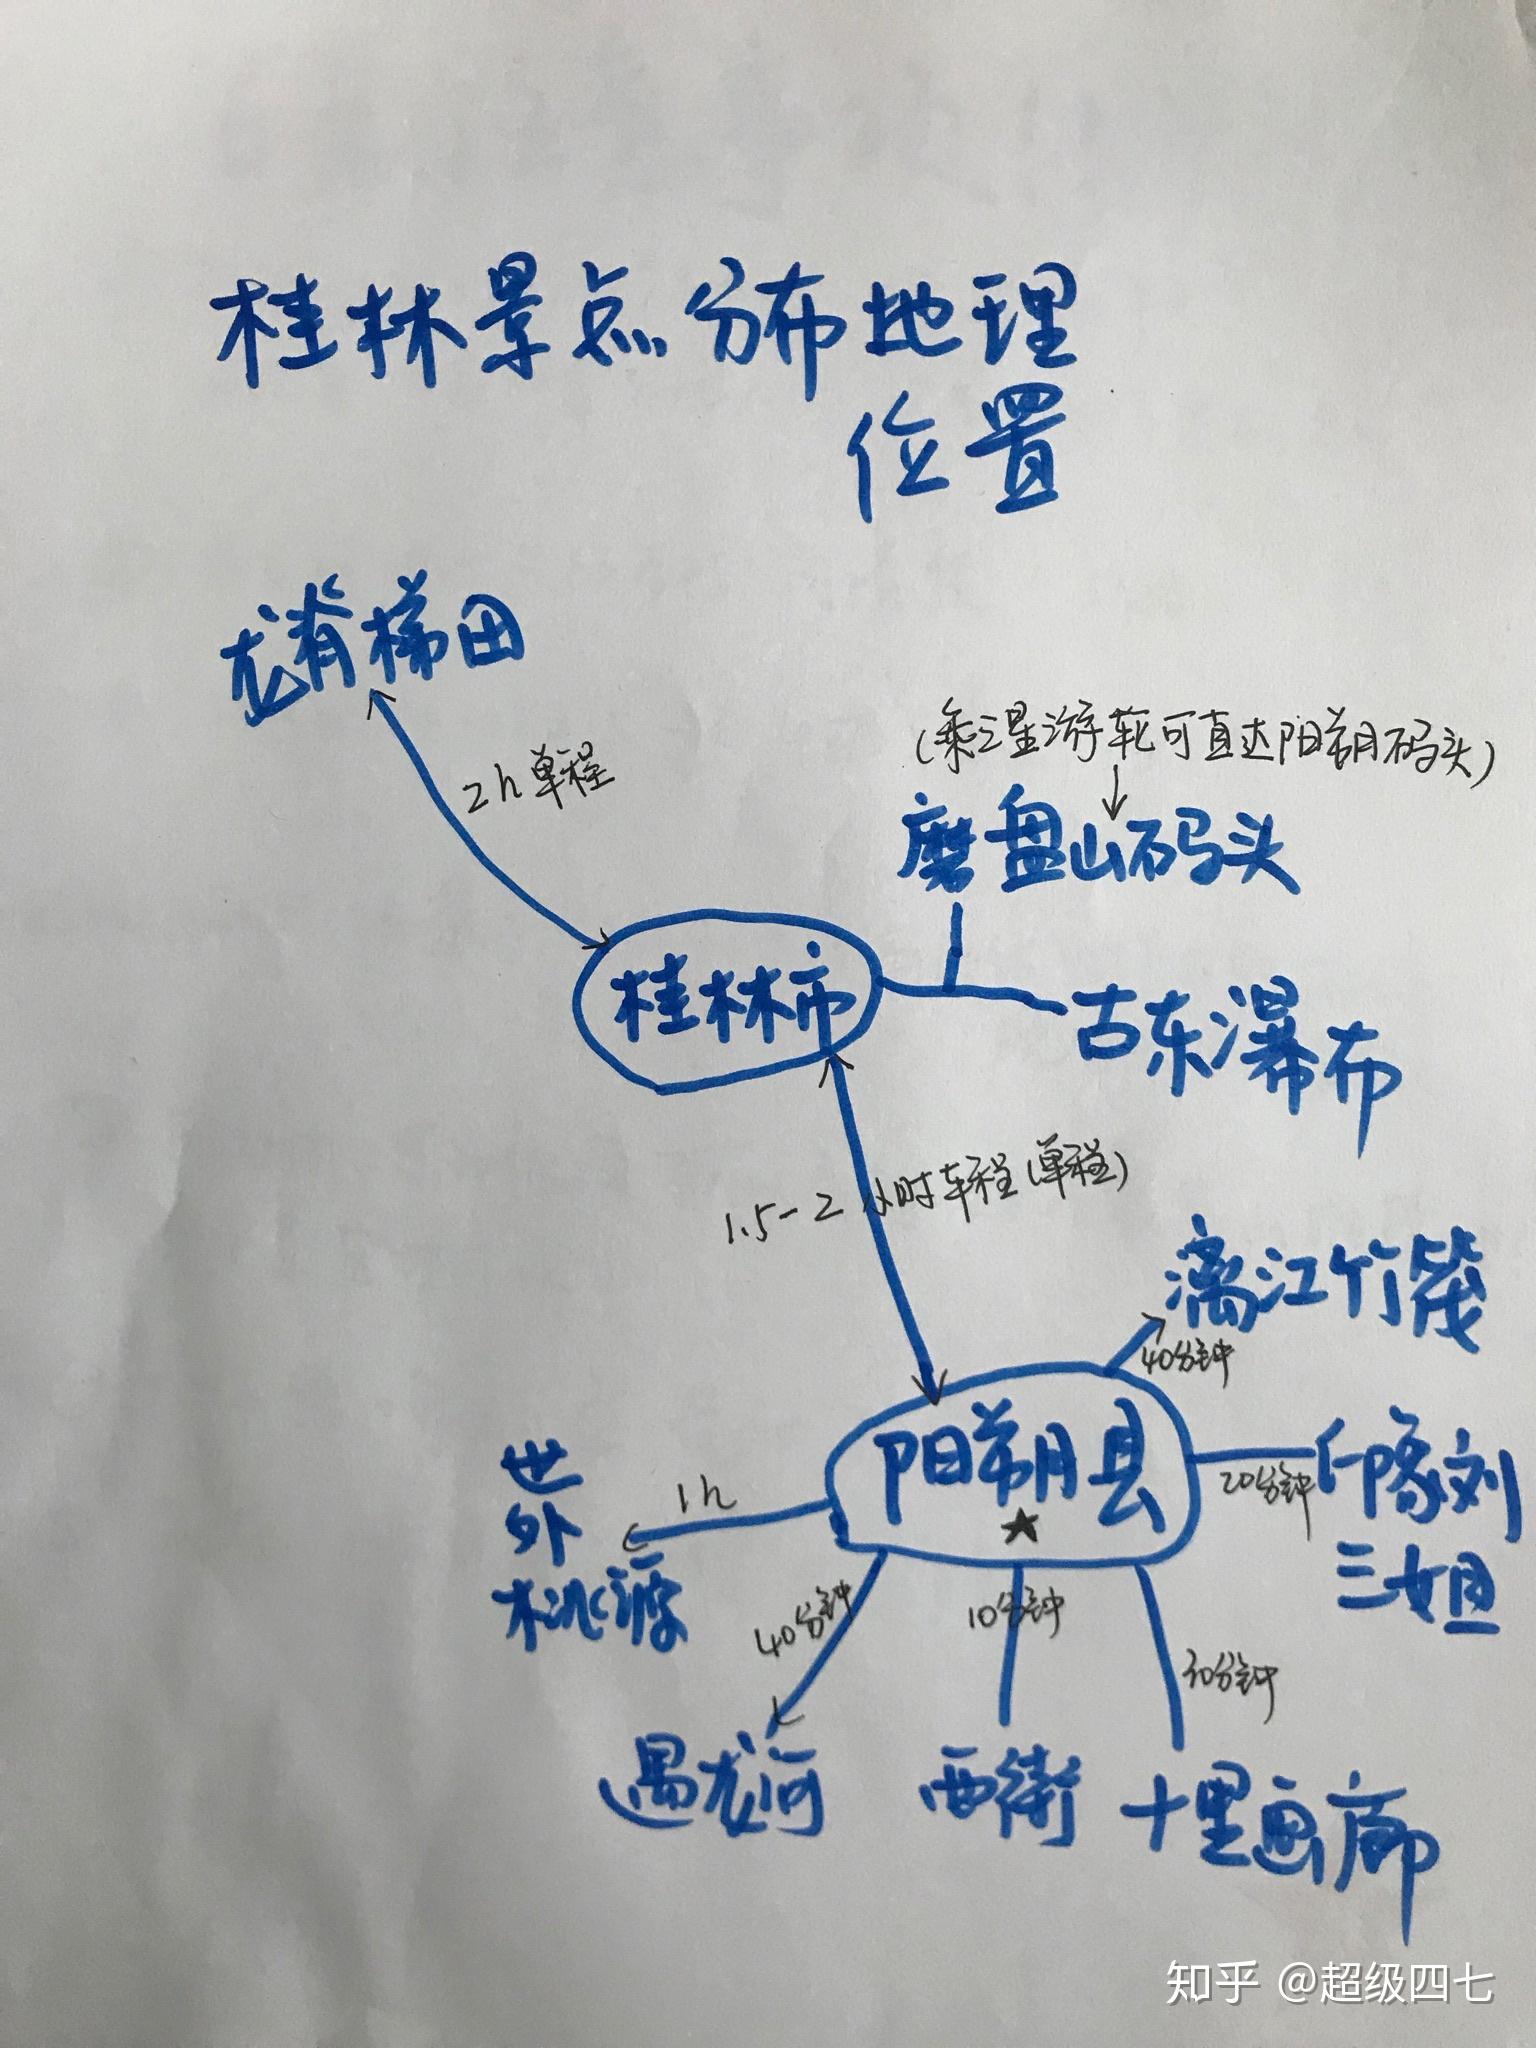 桂林景点分布地理
位置
龙脊梯田
2h单程
(乘三星游轮可直达阳朔码头)
磨盘山码头
桂林市
古东瀑布
1.5-2小时车程(单程)
漓江竹筏
40分钟
阳朔县
20分钟
印象刘
三姐
世
外
桃源
1h
40分钟
10分钟
30分钟
遇龙河
西街
十里画廊
知乎 @超级四七